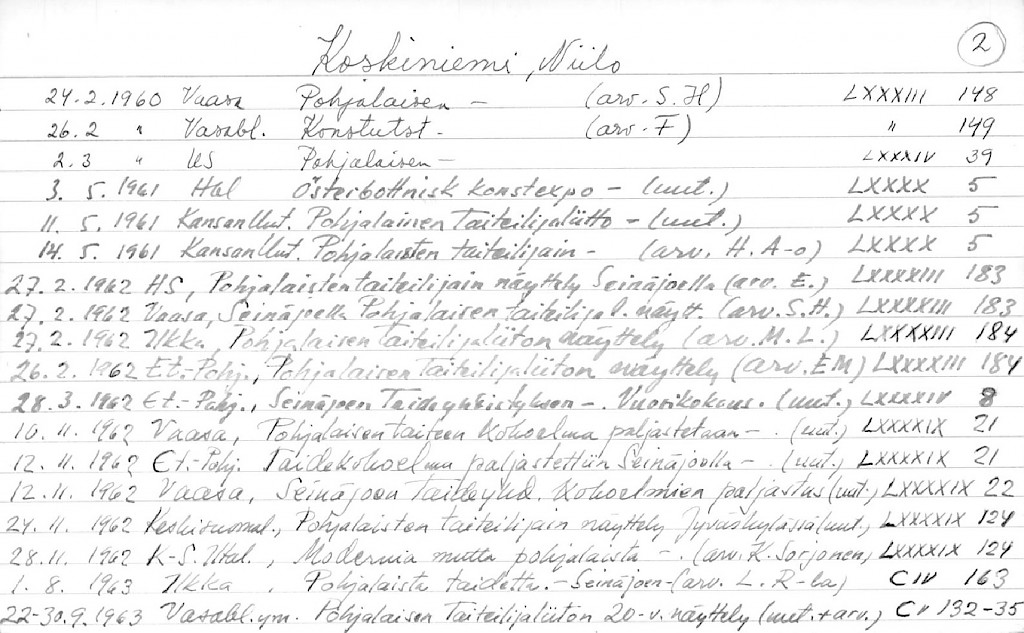 2
Koskiniemi, Niilo
24.2.1960 Vaasa Pohjalaisen - (arv. S. H) LXXXIII 148
26.2 " Vasabl. Konstutst - (arv. F) " 149
2.3 " US Pohjalaisen - LXXXIV 39
3. 5. 1961 Hbl Österbottnisk konstexpo - (uut.) LXXXX 5
11. 5. 1961 Kansan Uut. Pohjalainen Taiteilijaliitto - (uut.) LXXXX 5
14. 5. 1961 Kansan Uut. Pohjalaisten taiteilijain - (arv. H. A-o) LXXXX 5
27. 2. 1962 HS, Pohjalaisten taiteilijain näyttely Seinäjoella (arv. E.) LXXXXIII 183
27. 2. 1962 Vaasa, Seinäjoella Pohjalaisen taiteilijal. näytt. (arv. S.H.) LXXXXIII 183
27. 2. 1962 Ilkka Pohjalaisen Taiteilijaliiton näyttely (arv. M. L.) LXXXXIII 184
26. 2. 1962 Et.-Pohj., Pohjalaisen Taiteilijaliiton näyttely (arv. EM) LXXXXIII 184
28. 3. 1962 Et.-Pohj., Seinäjoen Taideyhdistyksen -. Vuosikokous. (uut.) LXXXXIV 8
10. 11. 1962 Vaasa, Pohjalaisen taiteen kokoelma paljastetaan - . (uut.) LXXXXIX 21
12. 11. 1962 Et.-Pohj. Taidekokoelma paljastettiin Seinäjoella - . (uut.) LXXXXIX 21
12. 11. 1962 Vaasa, Seinäjoen Taideyhd. kokoelmien paljastus (uut.) LXXXXIX 22
24. 11. 1962 Keskisuomal., Pohjalaisten taiteilijain näyttely Jyväskylässä (uut.) LXXXXIX 124
28. 11. 1962 K-S. Iltal., Modernia mutta pohjalaista - . (arv. K. Sorjonen) LXXXXIX 124
1. 8. 1963 Ilkka, Pohjalaista taidetta. - Seinäjoen - (arv. L. R-la) CIV 163
22-30.9.1963 Vasabl. ym. Pohjalaisen Taiteilijaliiton 20-v. näyttely (uut. + arv.) CV 132-35